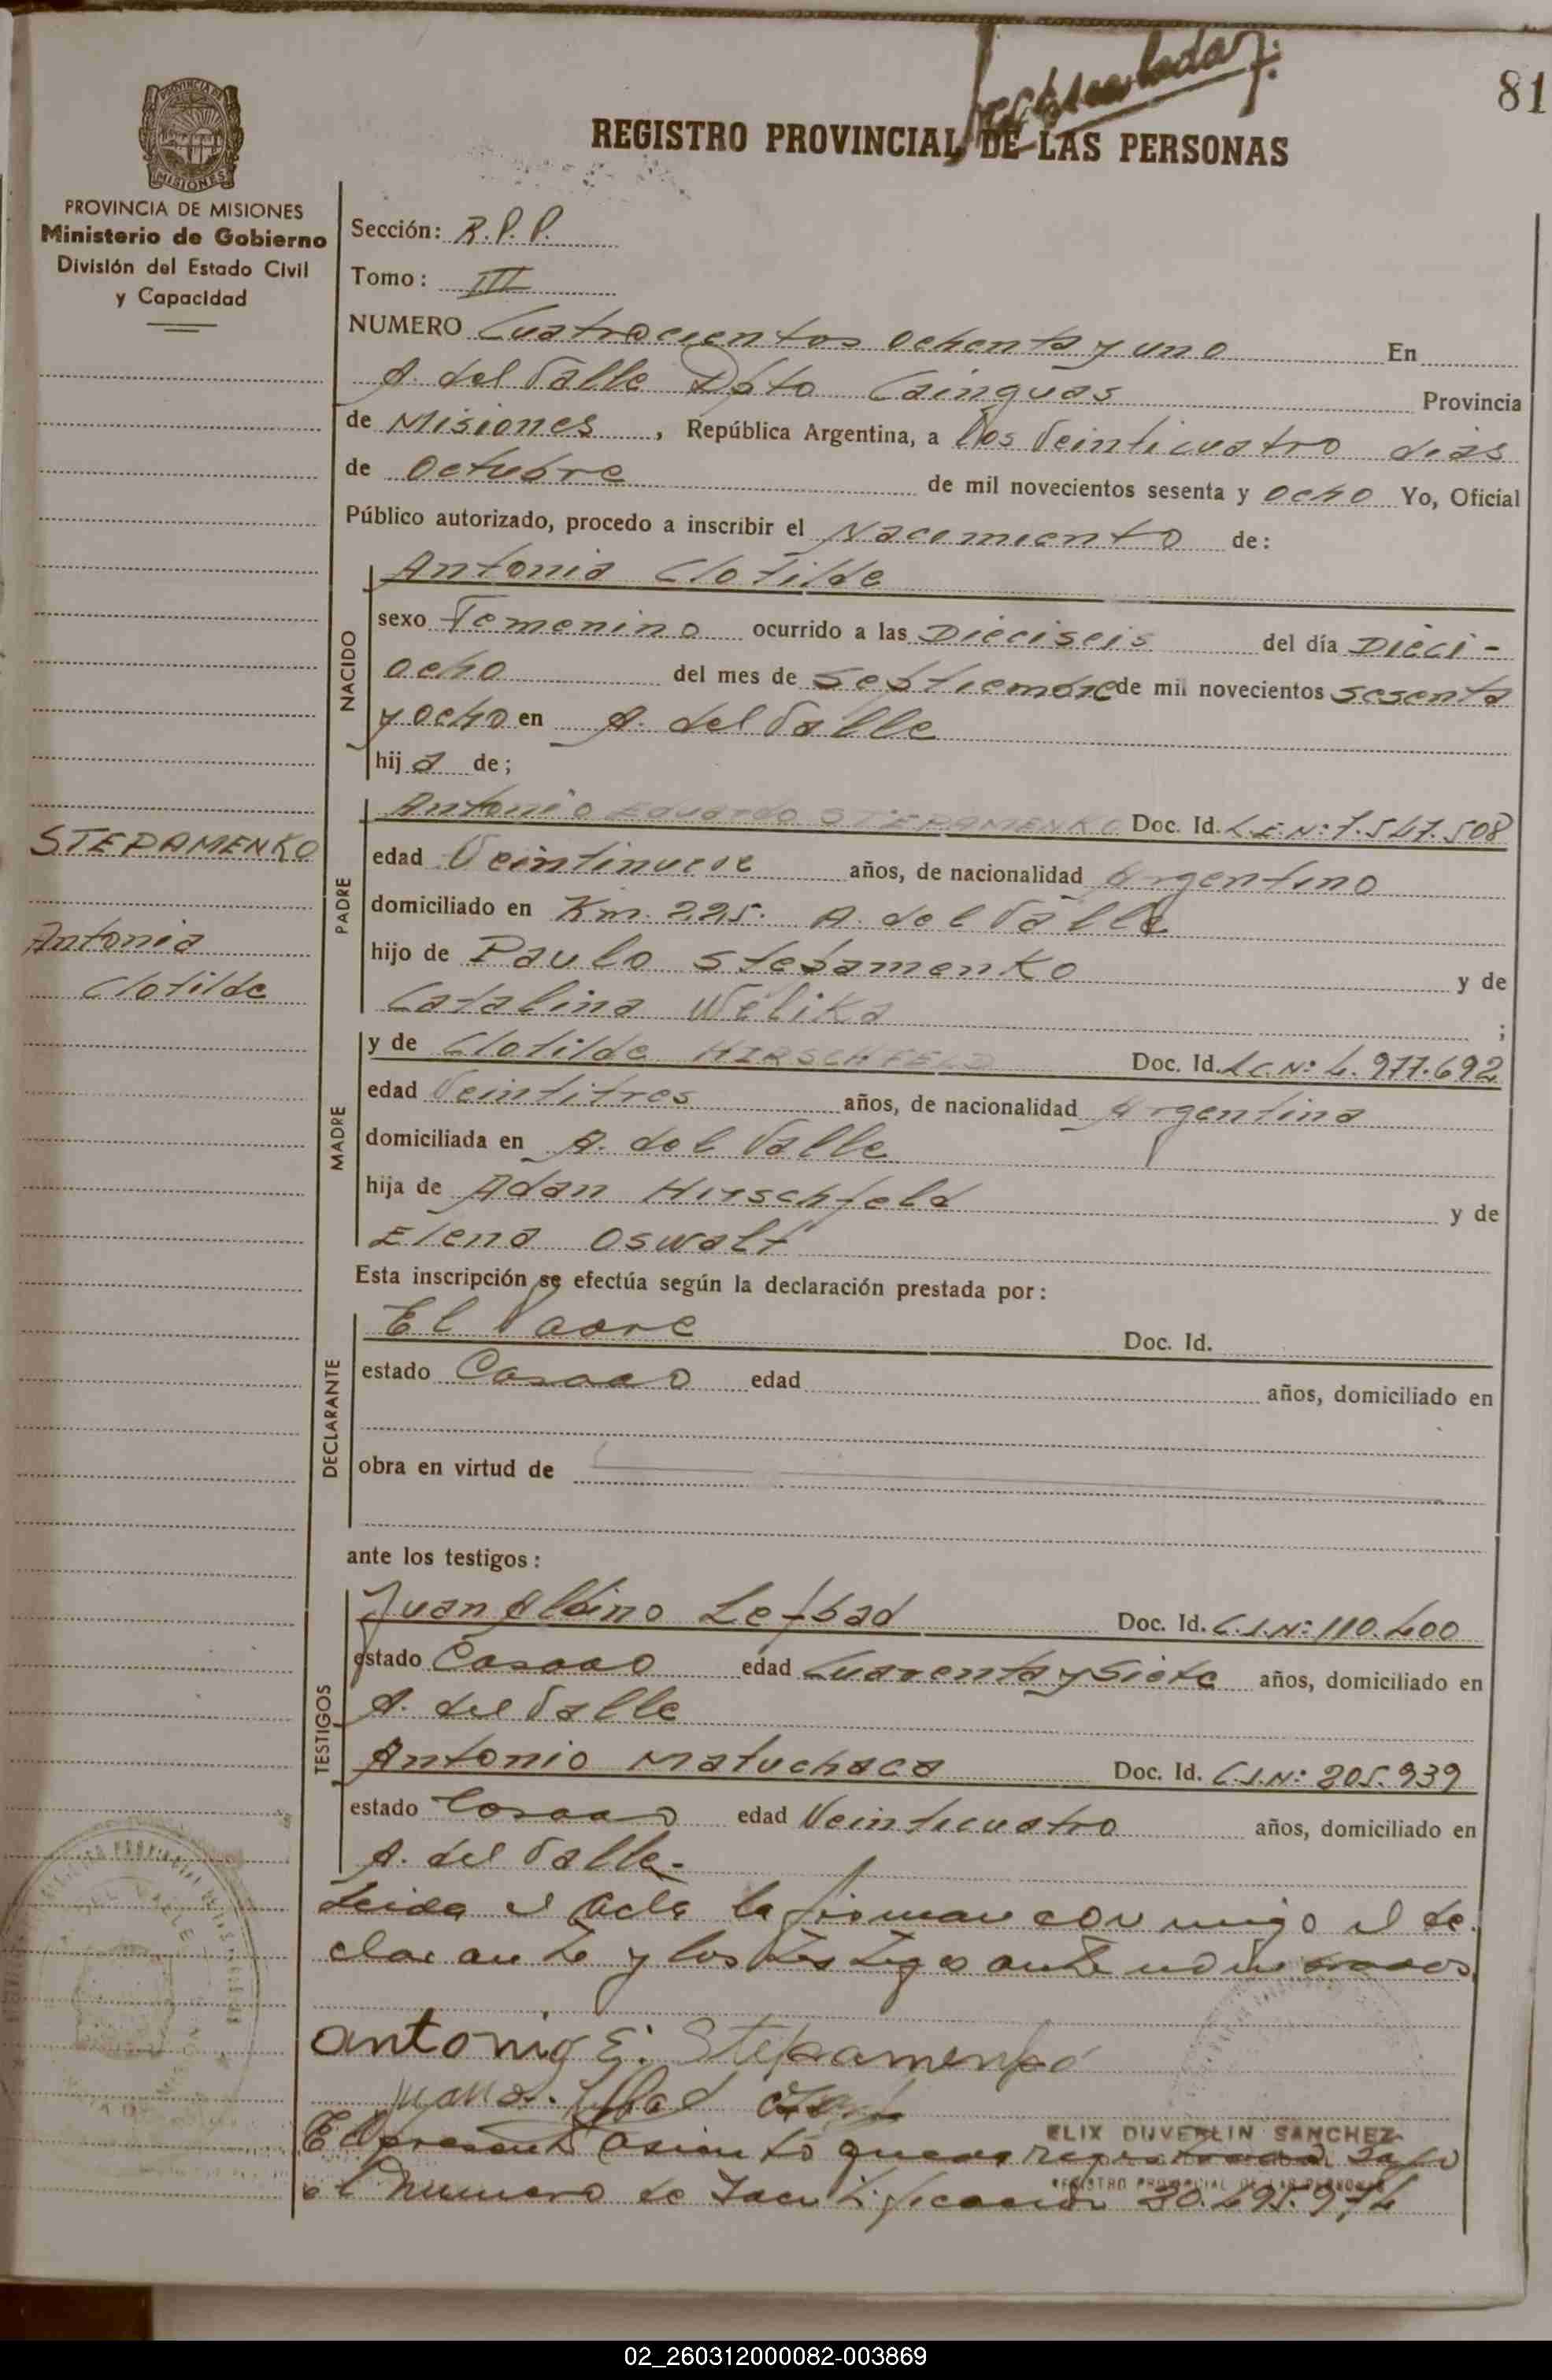 81
REGISTRO PROVINCIAL DE LAS PERSONAS
MISIONES
PROVINCIA DE MISIONES
Ministerio de Gobierno
División del Estado Civil
y Capacidad
Sección: R.P.P.
Tomo: III
NUMERO Cuatrocientos ochenta y uno En
A. del Valle Dpto Cainguas Provincia
de Misiones, República Argentina, a los Veinticuatro dias
de octubre de mil novecientos sesenta y ocho Yo, Oficial
Público autorizado, procedo a inscribir el Nacimiento de:
NACIDO
Antonia Clotilde
sexo Femenino ocurrido a las Dieciseis del día Dieci-
ocho del mes de Septiembre de mil novecientos sesenta
y ocho en A. del Valle
hija de;
STEPAMENKO
Antonia
Clotilde
PADRE
Antonio Eduardo STEPAMENKO Doc. Id. L.E.Nº: 7.547.508
edad Veintinueve años, de nacionalidad Argentino
domiciliado en Km. 225. A. del Valle
hijo de Paulo Stepamenko y de
Catalina Welika ;
MADRE
y de Clotilde HIRSCHFELD Doc. Id. L.C.Nº: 4.977.692
edad Veintitres años, de nacionalidad Argentina
domiciliada en A. del Valle
hija de Adan Hirschfeld y de
Elena Oswalt
Esta inscripción se efectúa según la declaración prestada por:
DECLARANTE
El Padre Doc. Id.
estado Casado edad años, domiciliado en
obra en virtud de
ante los testigos:
TESTIGOS
Juan Albino Doc. Id. C.I.Nº: 110.400
estado Casado edad Cuarenta y siete años, domiciliado en
A. del Valle
Antonio Matuchaca Doc. Id. C.I.Nº: 205.939
estado Casado edad Veinticuatro años, domiciliado en
A. del Valle.-
Leida el acta la firman conmigo el de-
clarante y los testigos antenombrados
antonio E. Stepamenko
ELIX DUVERLIN SANCHEZ
REGISTRO PROVINCIAL DE LAS PERSONAS
El presente asiento queda bajo
el numero de Identificacion 20.495.974
02_260312000082-003869